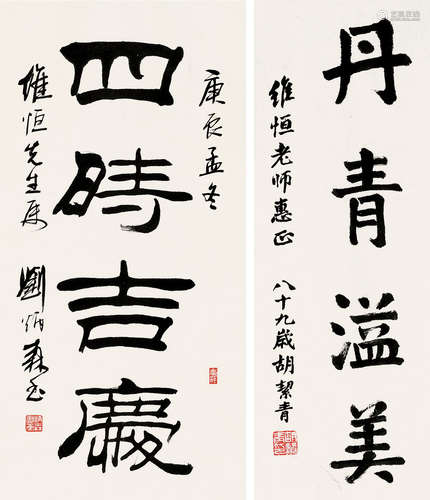 丹青溢美
維恒老師惠正
八十九歲胡絜青
庚辰孟冬
四時吉慶
維恒先生屬
劉炳森書